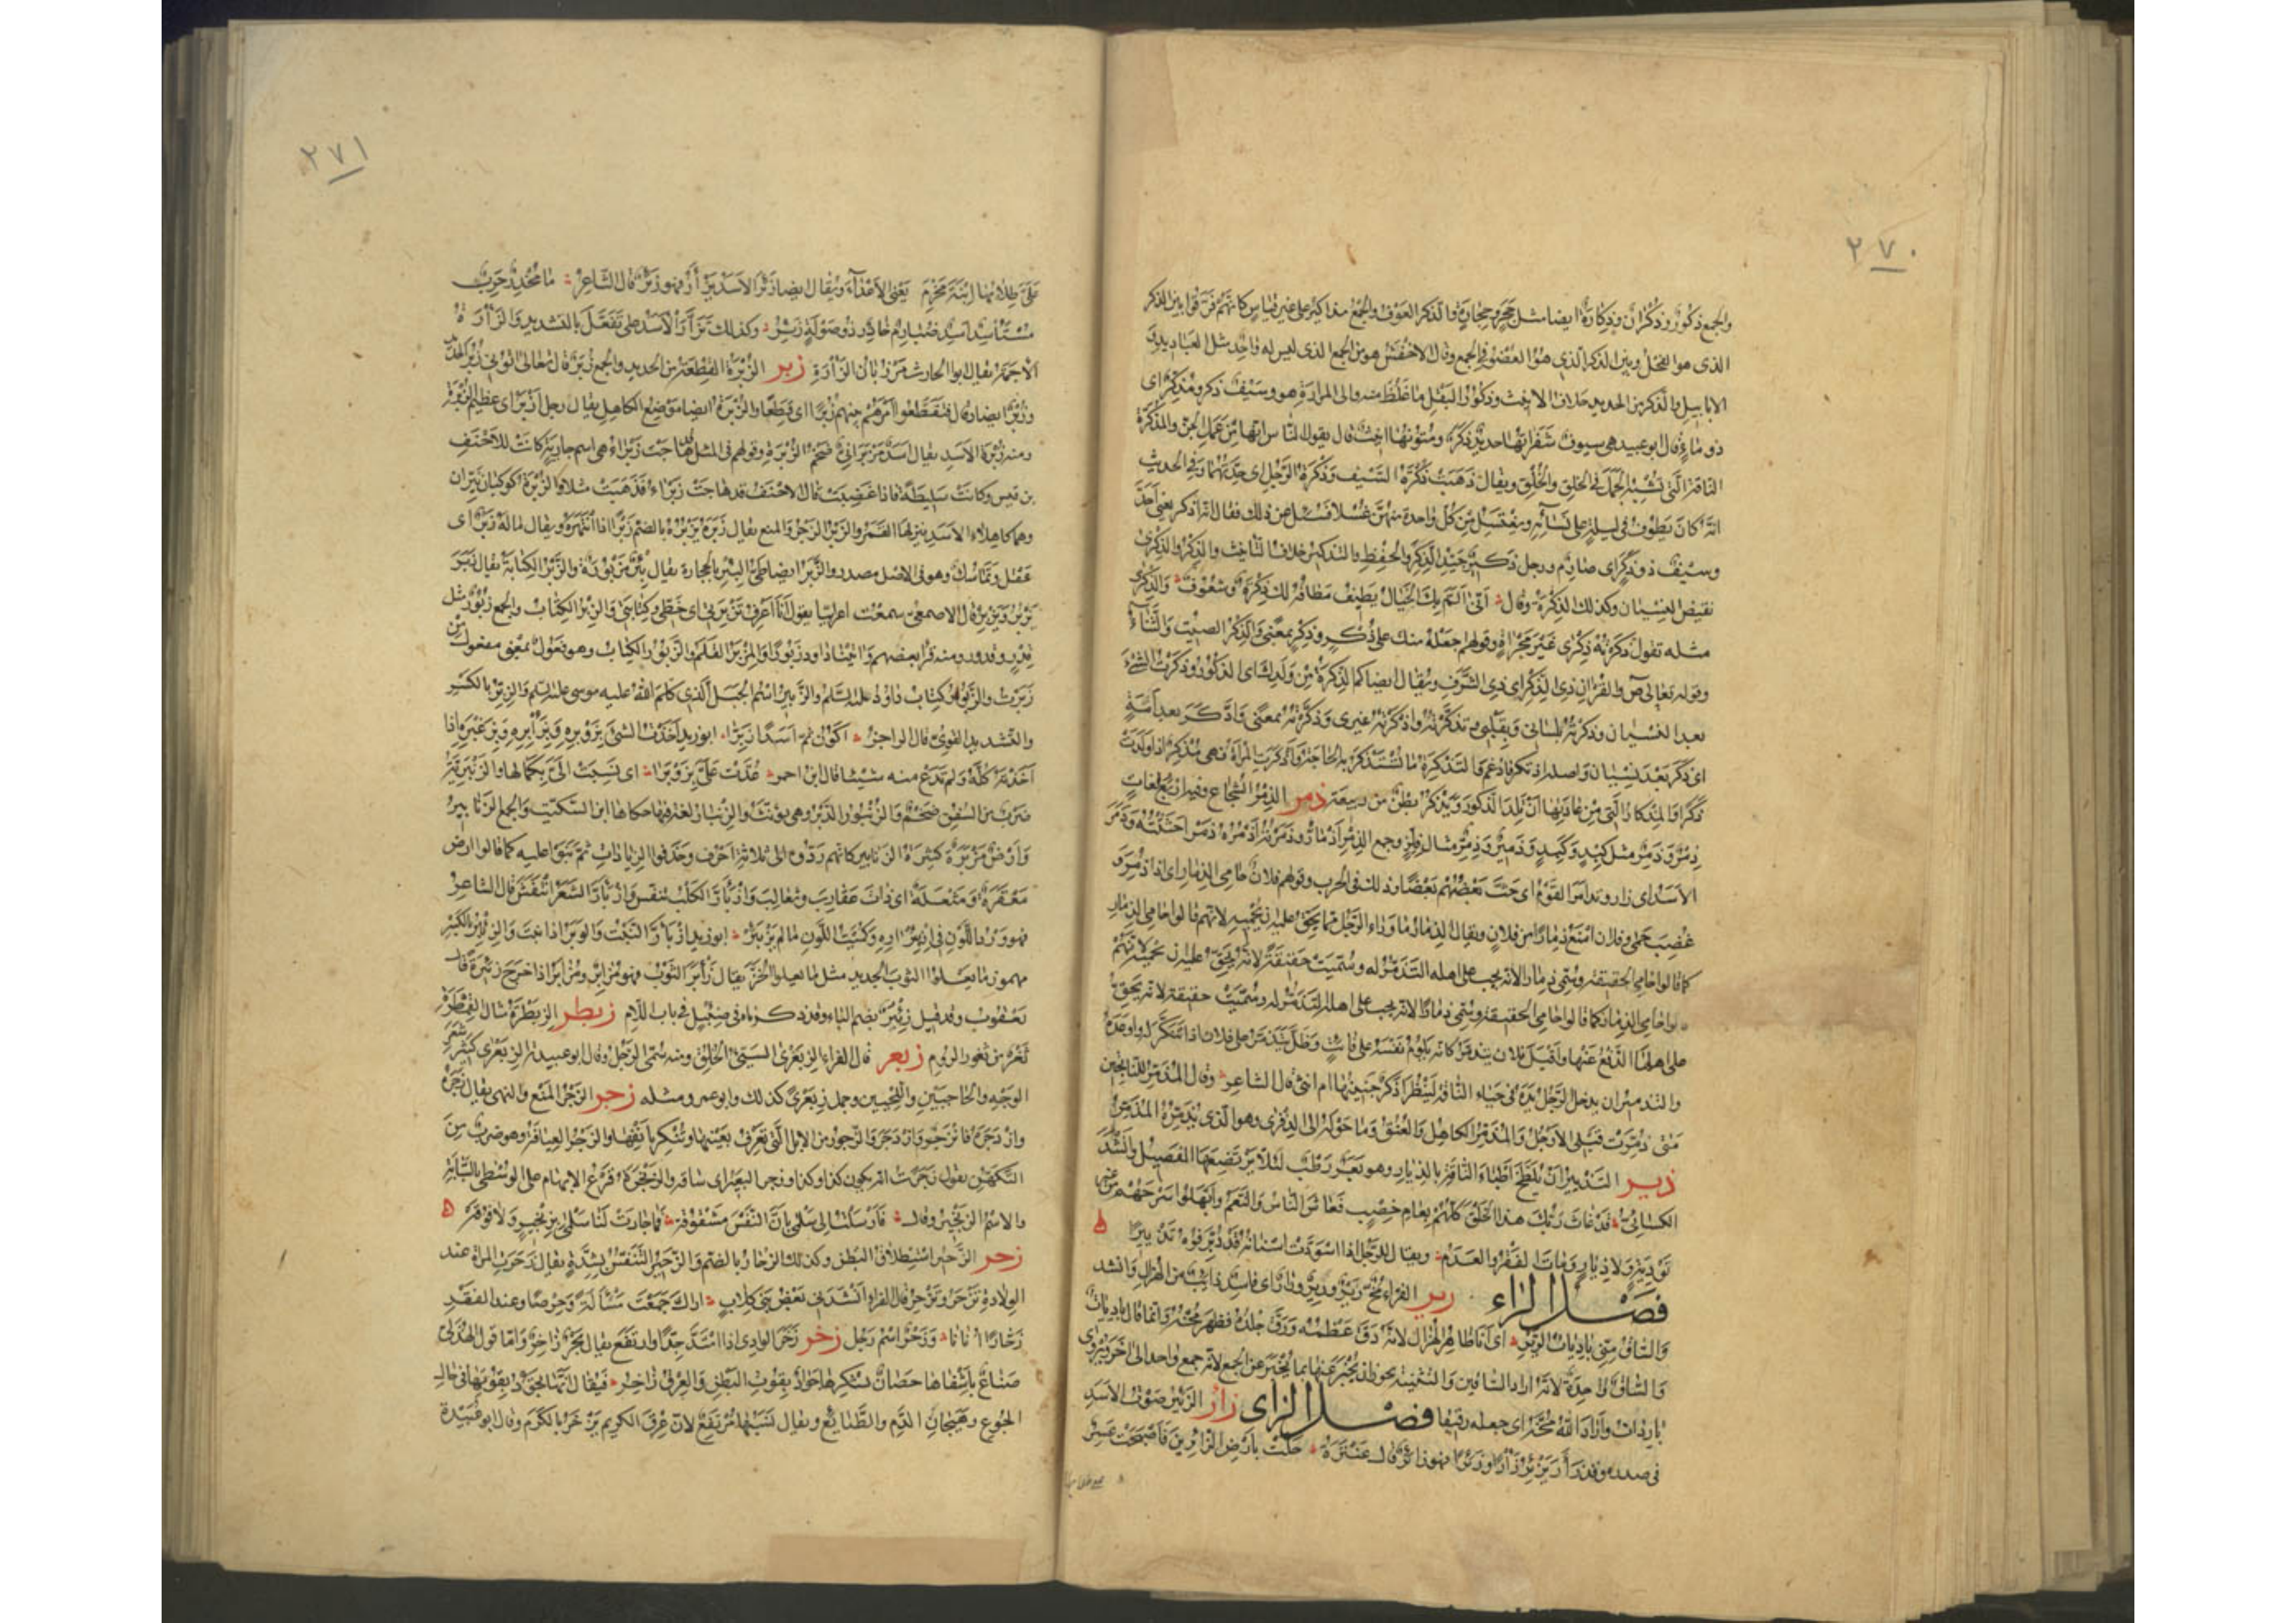 ٢٧٠
والجمع ذكور وذكران وذكارة ايضا مثل حجر وحجارة والذكر العوف والجمع مذاكير على غير قياس كانهم فرقوا بين الذكر
الذى هو الفحل وبين الذكر الذى هو العضو فى الجمع وقال الاخفش هو من الجمع الذى ليس له واحد مثل العباديد و
الابابيل والذكر من الحديد خلاف الانيث وذكور البقل ما غلظ منه والى المرارة هو وسيف ذكر ومذكر اى
ذو ماء قال ابو عبيد هى سيوف شفراتها حديد ذكر ومتونها انيث قال يقول الناس انها من عمل الجن والمذكرة
الناقة التى تشبه الجمل فى الخلق والخلق ويقال ذهبت ذكرة السيف وذكرة الرجل اى حدتهما وفى الحديث
انه كان يطوف فى ليلة على نسائه ويغتسل من كل واحدة منهن غسلا فسئل عن ذلك فقال انه اذكر يعنى احد
وسيف ذو ذكر اى صارم ورجل ذكير جيد الذكر والحفظ والتذكير خلاف التانيث والذكر والذكرى
نقيض النسيان وكذلك الذكرة وقال انى الم بك الخيال يطيف مطافه لك ذكرة وشعوف والذكرى
مثله تقول ذكرته ذكرى غير مجراة وقولهم اجعله منك على ذكر وذكر بمعنى والذكر الصيت والثناء
وقوله تعالى ص والقران ذى الذكر اى ذى الشرف ويقال ايضا كم الذكرة من ولدك اى الذكور وذكرت الشئ
بعد النسيان وذكرته بلسانى وبقلبى وتذكرته واذكرته غيرى وذكرته بمعنى وادكر بعد امة
اى ذكر بعد نسيان واصله اذتكر فادغم والتذكرة ما تستذكر به الحاجة واذكرت المراة فهى مذكر اذا ولدت
ذكرا والمذكار التى من عادتها ان تلد الذكور ويذكر بطن من ربيعة ذمر الذمر الشجاع وفيه اربع لغات
ذمر وذمر مثل كبد وكبد وذمير وذمر مثال فلز وجمع الذمر اذمار وذمرته اذمره ذمرا حثثته وذمر
الاسد اى زار وتذامر القوم اى حث بعضهم بعضا وذلك فى الحرب وقولهم فلان حامى الذمار اى اذا ذمر و
غضب حمى وفلان امنع ذمارا من فلان ويقال الذمار ما وراء الرجل مما يحق عليه ان يحميه لانهم قالوا حامى الذمار
كما قالوا حامى الحقيقة وسمى ذمارا لانه يجب على اهله التذمر له وسميت حقيقة لانه يحق عليه ان يحميه لانهم
قالوا حامى الذمار كما قالوا حامى الحقيقة وسمى ذمارا لانه يجب على اهله التذمر له وسميت حقيقة لانه يحق
على اهلها الدفع عنها واقبل فلان يتذمر كانه يلوم نفسه على فائت وظل يتذمر على فلان اذا تنكر له واوعده
والتذمير ان يدخل الرجل يده فى حياء الناقة لينظر اذكر جنينها ام انثى قال الشاعر وقال المذمر للناتجين
متى ذمرت قبلى الارجل والمذمر الكاهل والعنق وما حوله الى الذفرى وهو الذى يذمره المذمر
ذير التذيير ان يلطخ اطباء الناقة بالذيار وهو بعر رطب لئلا يرتضعها الفصيل وانشد
الكسائى قد غاث ربك هذا الخلق كلهم بعام خصب فعاش الناس والنعم وابهلوا سرحهم من غير
تودية ولا ذيار ومات الفقر والعدم ويقال للرجل اذا اسودت اسنانه قد ذير فوه تذييرا
فصل الراء رير الفراء مخ رير ورير ورار اى فاسد ذائب من الهزال وانشد
والساق منى باديات الرير اى انا ظاهر الهزال لانه دق عظمه ورق جلده فظهر مخه وانما قال باديات
والساق واحدة لانه اراد الساقين والتثنية يجوز ان يخبر عنها بما يخبر عن الجمع لانه جمع واحد الى اخر ويروى
باردات وارار الله مخه اى جعله رقيقا فصل الزاى زار الزئير صوت الاسد
فى صدره وقد زار يزئر زارا وزئيرا فهو زائر قال عنترة حلت بارض الزائرين فاصبحت عسرا
٢٧١
على طلابها ابنة مخرم يعنى الاعداء ويقال ايضا زئر الاسد يزار فهو زئر قال الشاعر ما مخدر حرب
مستاسد اسد ضبارم خادر ذو صولة زئر وكذلك تزار الاسد على تفعل بالتشديد والزارة
الاجمة يقال ابو الحارث مرزبان الزارة زبر الزبرة القطعة من الحديد والجمع زبر قال تعالى اتونى زبر الحديد
وزبر ايضا وقال فتقطعوا امرهم بينهم زبرا اى قطعا والزبرة ايضا موضع الكاهل يقال رجل ازبر اى عظيم الزبرة
ومنه زبرة الاسد يقال اسد مزبرانى ضخم الزبرة وقولهم فى المثل هاجت زبراء هى اسم جارية كانت للاحنف
بن قيس وكانت سليطة فاذا غضبت قال الاحنف قد هاجت زبراء فذهبت مثلا والزبرة كوكبان نيران
وهما كاهلا الاسد ينزلها القمر والزبر الزجر والمنع يقال زبره يزبره بالضم زبرا اذا انتهره ويقال ماله زبر اى
عقل وتماسك وهو فى الاصل مصدر والزبر ايضا طى البئر بالحجارة يقال بئر مزبورة والزبر الكتابة يقال زبر
يزبر ويزبر قال الاصمعى سمعت اعرابيا يقول انا اعرف تزبرتى اى خطى وكتابتى والزبر الكتاب والجمع زبور مثل
قدر وقدور ومنه قرا بعضهم واتينا داود زبورا والمزبر القلم والزبور الكتاب وهو فعول بمعنى مفعول من
زبرت والزبور كتاب داود عليه السلم والزبير اسم الجبل الذى كلم الله عليه موسى عليه السلم والزبر بالكسر
والتشديد القوى قال الراجز اكون ثم اسدا زبرا ابو زيد اخذت الشئ بزوبره وبزابره وبزغبره اذا
اخذته كله ولم تدع منه شيئا قال ابن احمر عدت على بزوبرا اى نسبت الى بكمالها والزنبرية
ضرب من السفن ضخم والزنبور الدبر وهى تؤنث والزنبار لغة فيها حكاها ابن السكيت والجمع الزنابير
وارض مزبرة كثيرة الزنابير كانهم ردوه الى ثلاثة احرف وحذفوا الزيادات ثم بنوا عليه كما قالوا ارض
معقرة ومثعلة اى ذات عقارب وثعالب وازبار الكلب تنفش وازبار الشعر انتفش قال الشاعر
فهو ورد اللون فى ازبئراره وكميت اللون ما لم يزبئر ابو زيد ازبار النبت والوبر اذا نبت والزئبر بالكسر
مهموز ما يعلو الثوب الجديد مثل ما يعلو الخز يقال زابر الثوب فهو مزابر ومزابر اذا خرج زئبره قال
يعقوب وقد قيل زئبر بضم الباء وقد ذكرناه فى ضئبل فى باب اللام زبطر الزبطرة مثال القمطرة
ثغر من ثغور الروم زبعر قال الفراء الزبعرى السيئ الخلق ومنه سمى الرجل وقال ابو عبيدة الزبعرى كثير شعر
الوجه والحاجبين واللحيين وجمل زبعرى كذلك وابو عمرو مثله زجر الزجر المنع والنهى يقال زجره
وازدجره فانزجر وازدجر والزجور من الابل التى تعرف بعينها وتنكر بانفها والزجر العيافة وهو ضرب من
التكهن يقول زجرت انه يكون كذا وكذا وزجر البعير اى ساقه والزنجرة قرع الابهام على الوسطى بالسبابة
والاسم الزنجير وقال فارسلت الى سلمى بان النفس مشغوفة فما جادت لنا سلمى بزنجير ولا فوفه
زحر الزحير استطلاق البطن وكذلك الزحار بالضم والزحير التنفس بشدة يقال زحرت المراة عند
الولادة تزحر وتزحر قال الفراء انشدنى بعض بنى كلاب اراك جمعت مسالة وحرصا وعند الفقر
زحارا انانا وزحر اسم رجل زخر زخر الوادى اذا امتد جدا وارتفع يقال بحر زاخر واما قول الهذلى
صناع باشفاها حصان بشكرها جواد بقوت البطن والعرق زاخر فيقال انها تجود بقوتها فى حال
الجوع وهيجان الدم والطبائع ويقال نسبها مرتفع لان عرق الكريم يزخر بالكرم وقال ابو عبيدة